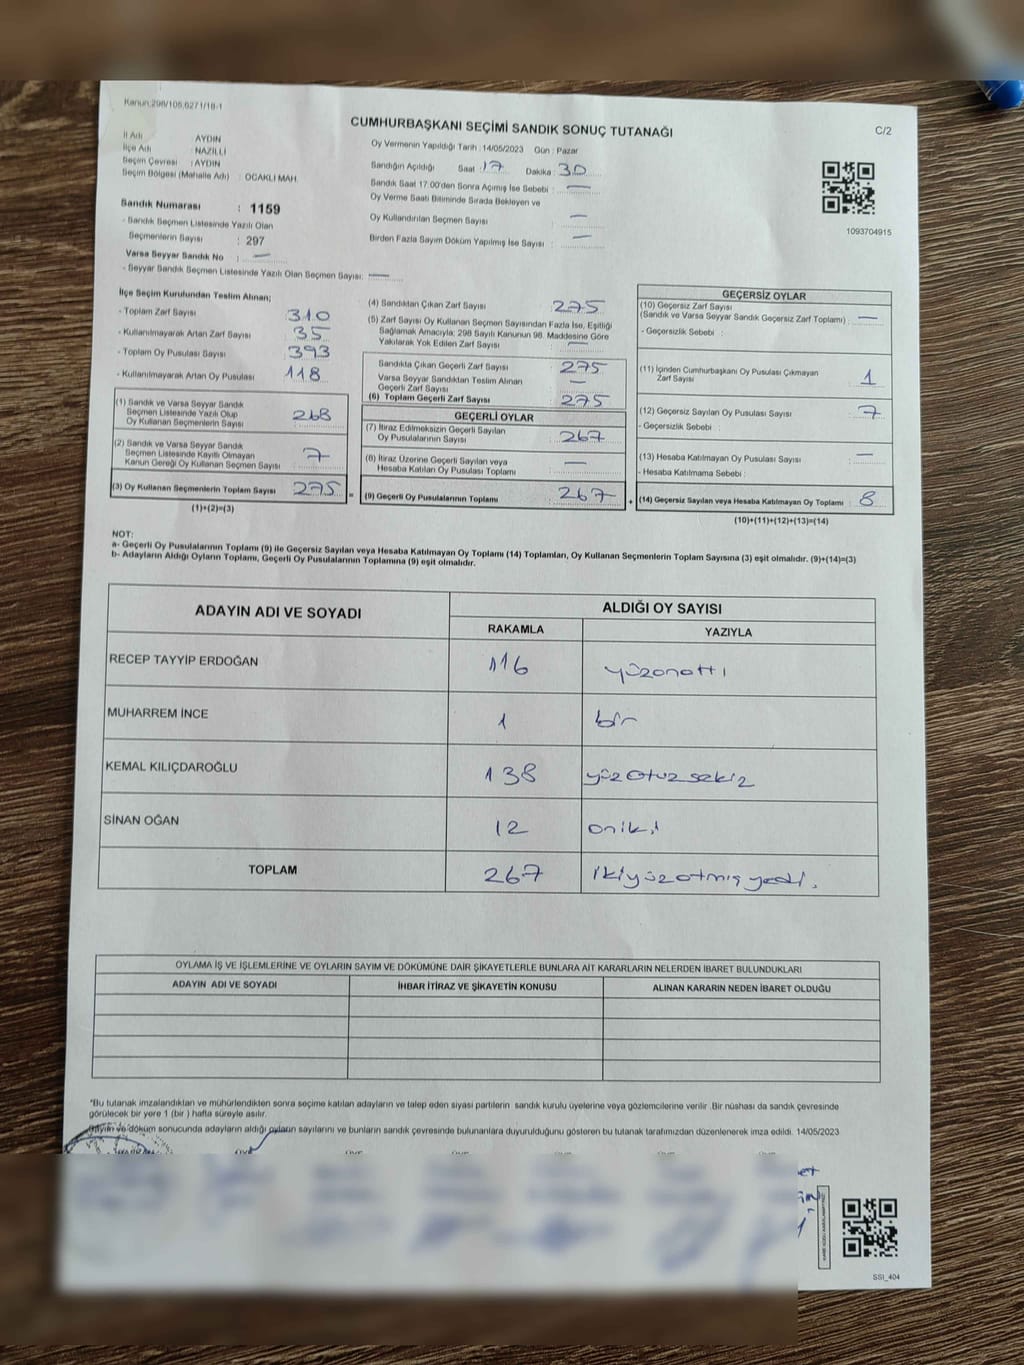 Kanun:298/105,6271/18-1
CUMHURBAŞKANI SEÇİMİ SANDIK SONUÇ TUTANAĞI
C/2
İl Adı : AYDIN
İlçe Adı : NAZİLLİ
Seçim Çevresi : AYDIN
Seçim Bölgesi (Mahalle Adı) : OCAKLI MAH.
Sandık Numarası : 1159
- Sandık Seçmen Listesinde Yazılı Olan
Seçmenlerin Sayısı : 297
Varsa Seyyar Sandık No : —
- Seyyar Sandık Seçmen Listesinde Yazılı Olan Seçmen Sayısı: —
Oy Vermenin Yapıldığı Tarih : 14/05/2023 Gün : Pazar
Sandığın Açıldığı Saat : 17 Dakika : 30
Sandık Saat 17:00'den Sonra Açımış İse Sebebi : —
Oy Verme Saati Bitiminde Sırada Bekleyen ve
Oy Kullandırılan Seçmen Sayısı —
Birden Fazla Sayım Döküm Yapılmış İse Sayısı : —
1093704915
İlçe Seçim Kurulundan Teslim Alınan;
- Toplam Zarf Sayısı : 310
- Kullanılmayarak Artan Zarf Sayısı : 35
- Toplam Oy Pusulası Sayısı : 393
- Kullanılmayarak Artan Oy Pusulası : 118
(1) Sandık ve Varsa Seyyar Sandık
Seçmen Listesinde Yazılı Olup
Oy Kullanan Seçmenlerin Sayısı : 268
(2) Sandık ve Varsa Seyyar Sandık
Seçmen Listesinde Kayıtlı Olmayan
Kanun Gereği Oy Kullanan Seçmen Sayısı : 7
(3) Oy Kullanan Seçmenlerin Toplam Sayısı : 275 =
(1)+(2)=(3)
(4) Sandıktan Çıkan Zarf Sayısı 275
(5) Zarf Sayısı Oy Kullanan Seçmen Sayısından Fazla İse, Eşitliği
Sağlamak Amacıyla; 298 Sayılı Kanunun 98. Maddesine Göre
Yakılarak Yok Edilen Zarf Sayısı —
Sandıkta Çıkan Geçerli Zarf Sayısı 275
Varsa Seyyar Sandıktan Teslim Alınan
Geçerli Zarf Sayısı —
(6) Toplam Geçerli Zarf Sayısı 275
GEÇERLİ OYLAR
(7) İtiraz Edilmeksizin Geçerli Sayılan
Oy Pusulalarının Sayısı : 267
(8) İtiraz Üzerine Geçerli Sayılan veya
Hesaba Katılan Oy Pusulası Toplamı : —
(9) Geçerli Oy Pusulalarının Toplamı : 267 +
GEÇERSİZ OYLAR
(10) Geçersiz Zarf Sayısı
(Sandık ve Varsa Seyyar Sandık Geçersiz Zarf Toplamı) : —
- Geçersizlik Sebebi :
(11) İçinden Cumhurbaşkanı Oy Pusulası Çıkmayan
Zarf Sayısı : 1
(12) Geçersiz Sayılan Oy Pusulası Sayısı : 7
- Geçersizlik Sebebi :
(13) Hesaba Katılmayan Oy Pusulası Sayısı : —
- Hesaba Katılmama Sebebi :
(14) Geçersiz Sayılan veya Hesaba Katılmayan Oy Toplamı : 8
(10)+(11)+(12)+(13)=(14)
NOT:
a- Geçerli Oy Pusulalarının Toplamı (9) ile Geçersiz Sayılan veya Hesaba Katılmayan Oy Toplamı (14) Toplamları, Oy Kullanan Seçmenlerin Toplam Sayısına (3) eşit olmalıdır. (9)+(14)=(3)
b- Adayların Aldığı Oyların Toplamı, Geçerli Oy Pusulalarının Toplamına (9) eşit olmalıdır.
ADAYIN ADI VE SOYADI ALDIĞI OY SAYISI
RAKAMLA YAZIYLA
RECEP TAYYİP ERDOĞAN 116 yüzonaltı
MUHARREM İNCE 1 bir
KEMAL KILIÇDAROĞLU 138 yüzotuzsekiz
SİNAN OĞAN 12 oniki
TOPLAM 267 ikiyüzatmışyedi.
OYLAMA İŞ VE İŞLEMLERİNE VE OYLARIN SAYIM VE DÖKÜMÜNE DAİR ŞİKAYETLERLE BUNLARA AİT KARARLARIN NELERDEN İBARET BULUNDUKLARI
ADAYIN ADI VE SOYADI İHBAR İTİRAZ VE ŞİKAYETİN KONUSU ALINAN KARARIN NEDEN İBARET OLDUĞU
*Bu tutanak imzalandıktan ve mühürlendikten sonra seçime katılan adayların ve talep eden siyasi partilerin sandık kurulu üyelerine veya gözlemcilerine verilir .Bir nüshası da sandık çevresinde
görülecek bir yere 1 (bir ) hafta süreyle asılır.
Sayım ve döküm sonucunda adayların aldığı oyların sayılarını ve bunların sandık çevresinde bulunanlara duyurulduğunu gösteren bu tutanak tarafımızdan düzenlenerek imza edildi. 14/05/2023
SSI_404